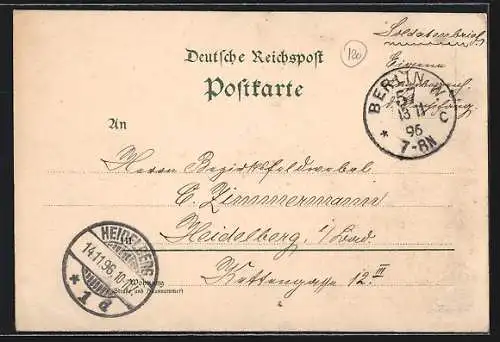 Deutsche Reichspost
Postkarte
120
Soldatenbrief
Eigene
BERLIN W.
57
13 11
96
7-8N
* C
An
Herrn Bezirksfeldwebel
C. Zimmermann
Heidelberg, i/Bad.
Kettengasse 12.III
HEIDELBERG
14.11.96.10-
* 1 a
Wohnung
(Straße und Hausnummer)